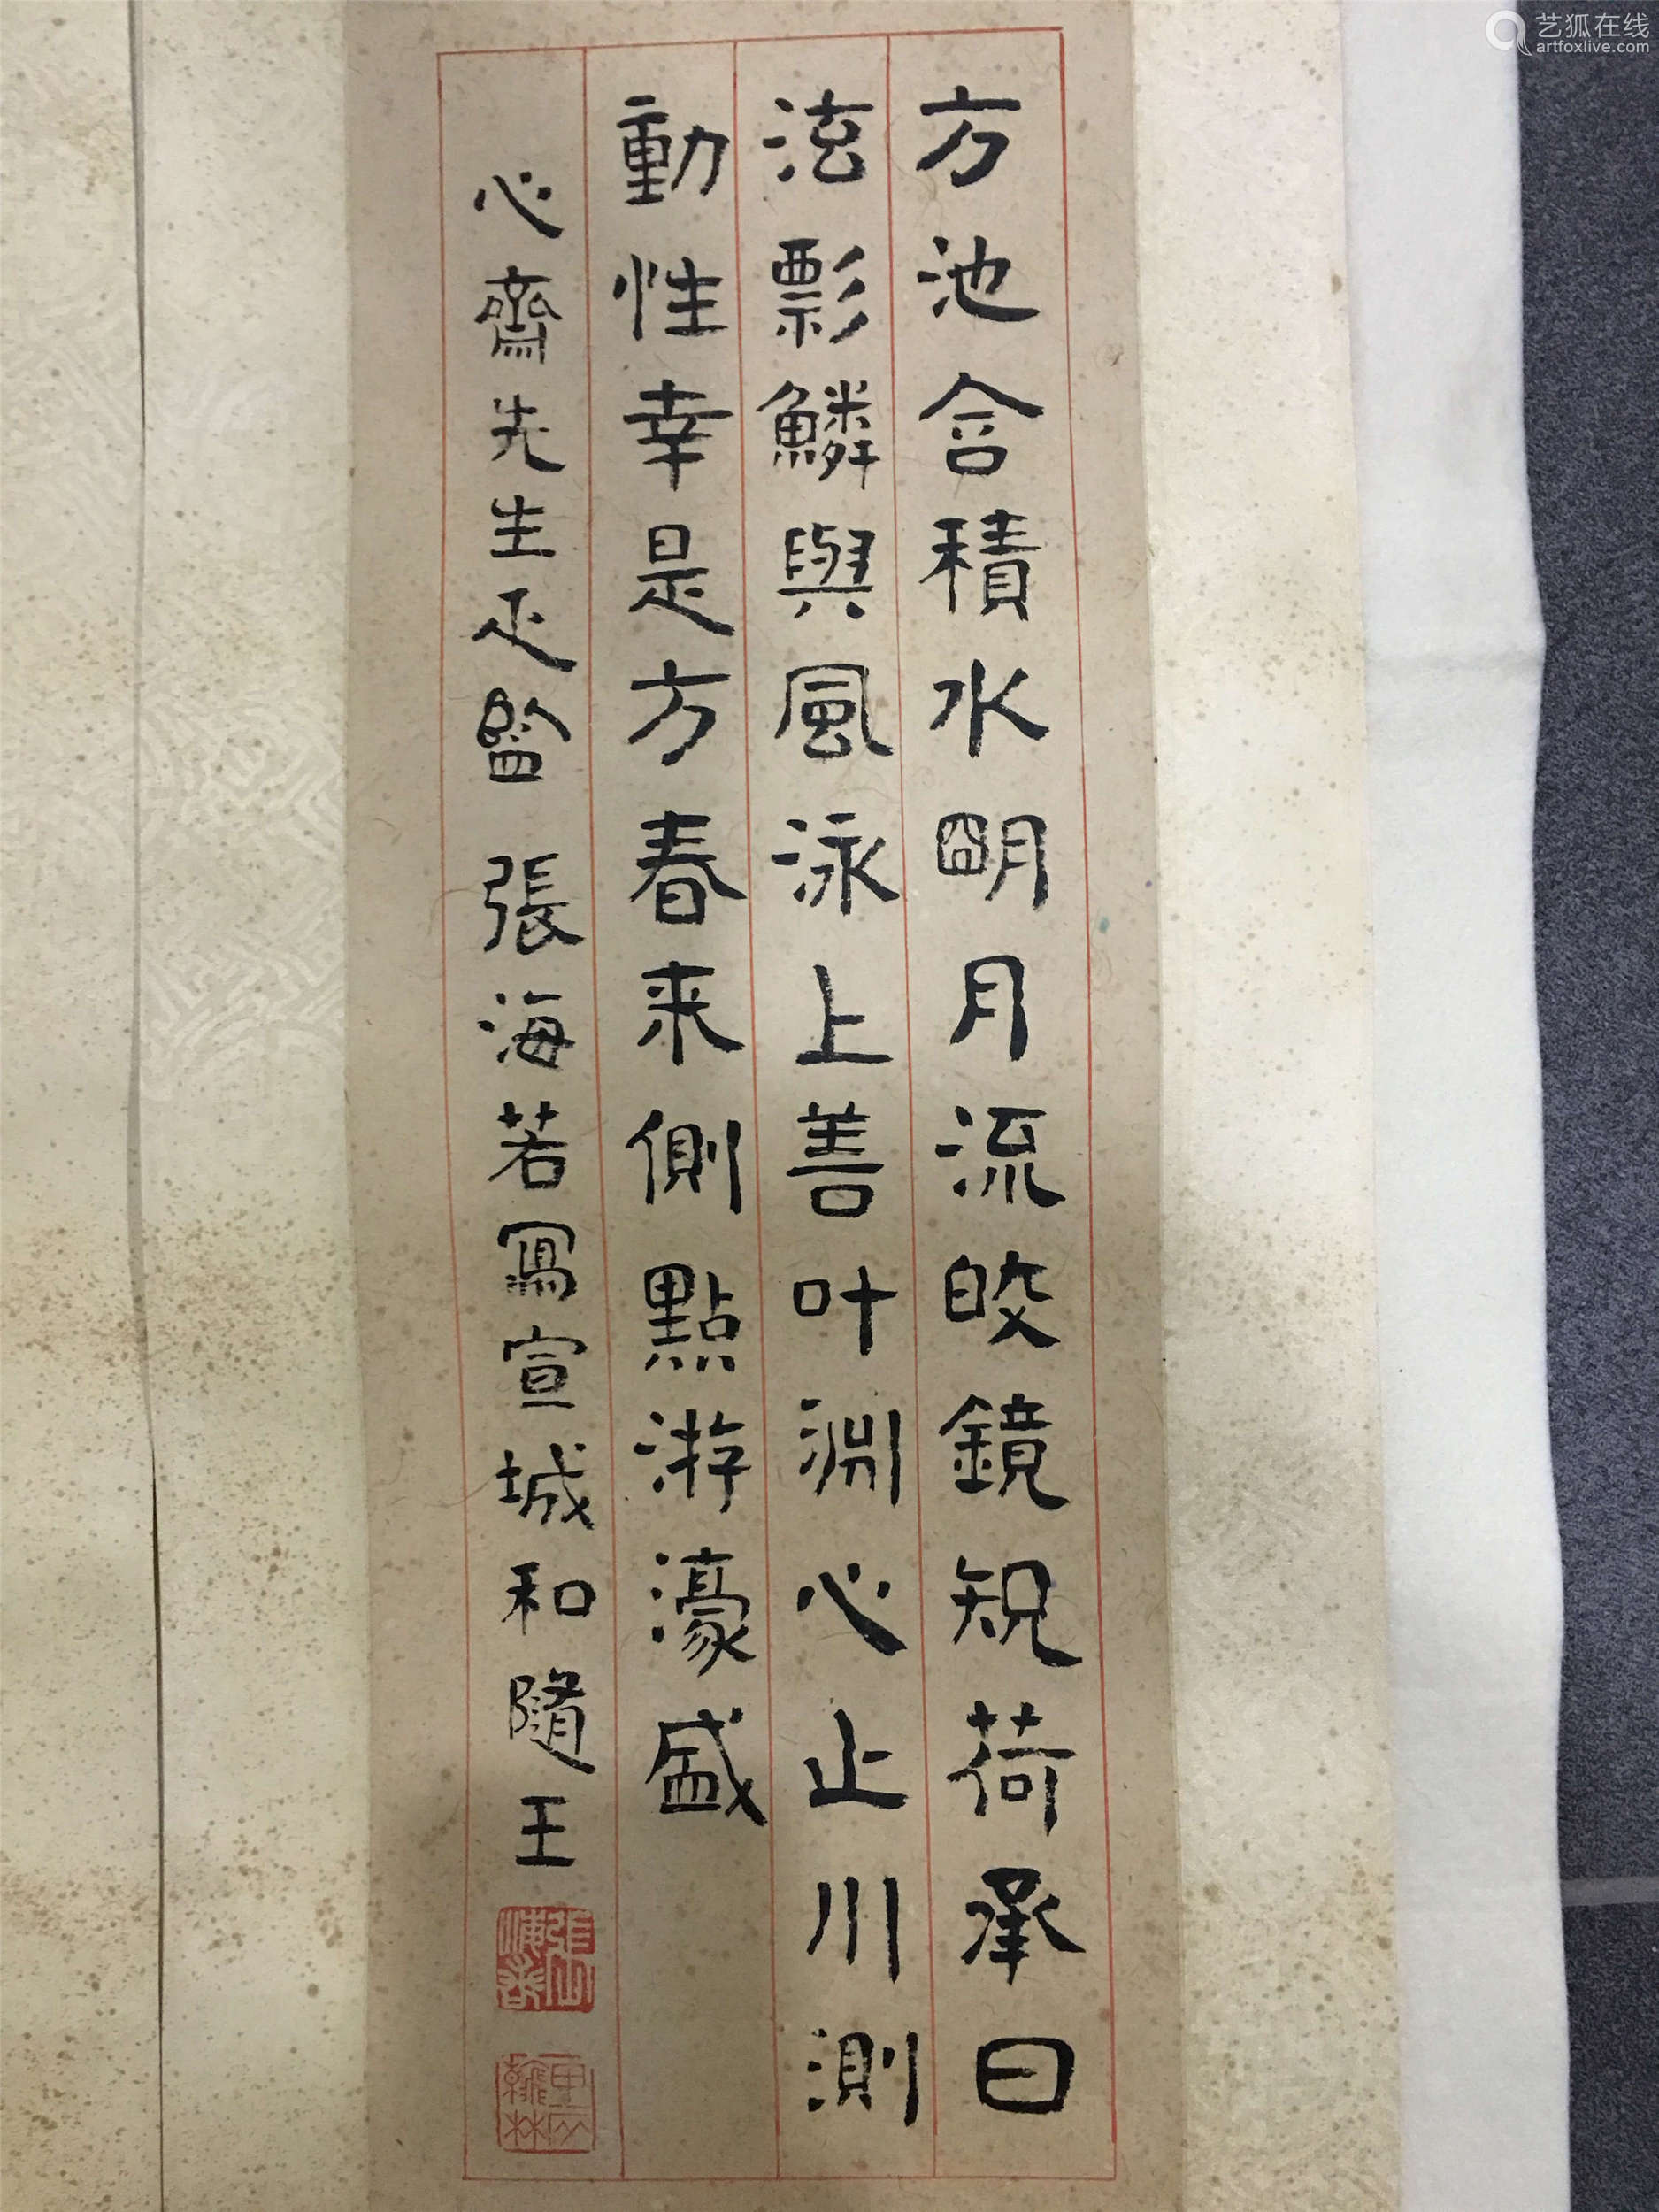 方池含積水明月流皎鏡規荷承日
泫彯鱗與風泳上善叶淵心止川測
動性幸是方春来側點游濠盛
心齋先生疋監 張海若寫宣城和隨王
艺狐在线
artfoxlive.com